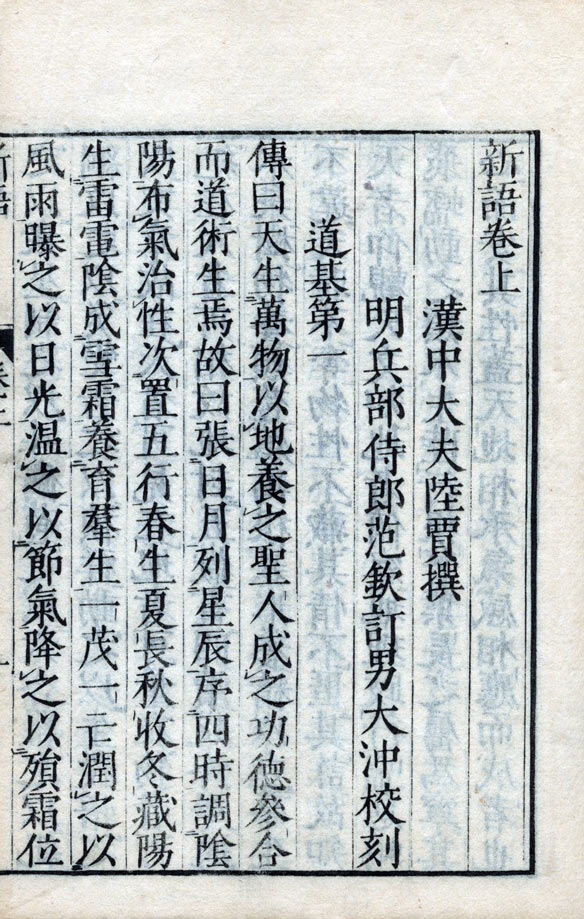 新語卷上
漢中大夫陸賈撰
明兵部侍郎范欽訂男大沖校刻
道基第一
傳曰天生萬物以地養之聖人成之功德參合
而道術生焉故曰張日月列星辰序四時調陰
陽布氣治性次置五行春生夏長秋收冬藏陽
生雷電陰成雪霜養育羣生一茂一亡潤之以
風雨曝之以日光温之以節氣降之以殞霜位